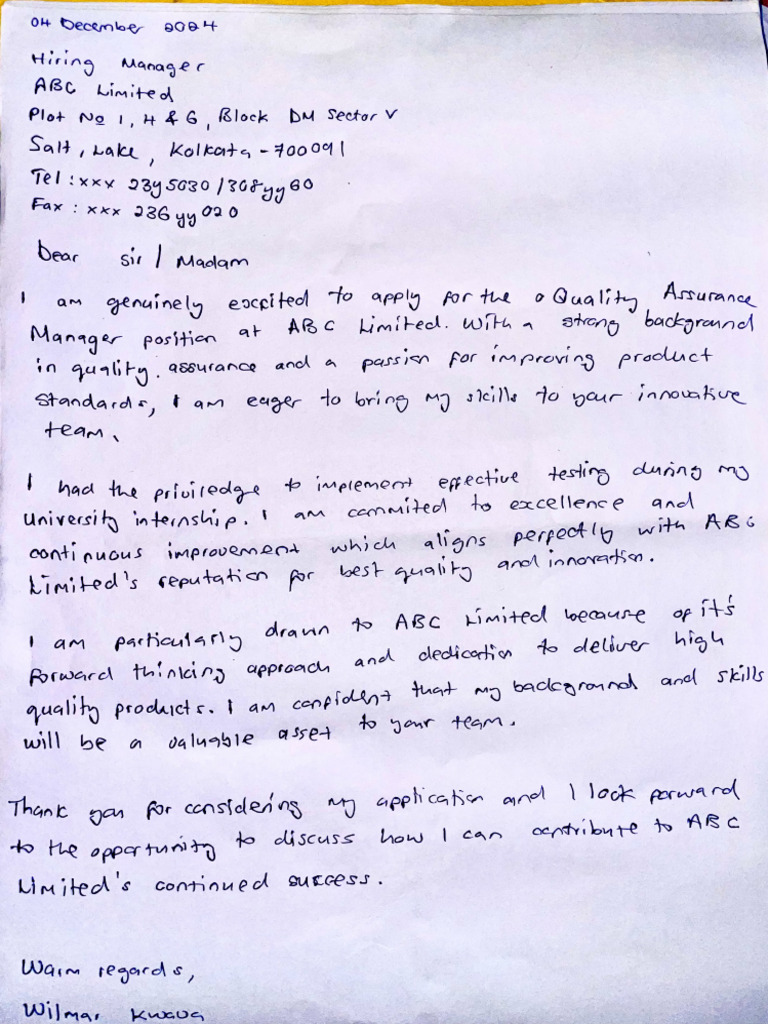 04 December 2024
Hiring Manager
ABC Limited
Plot No 1, H & G, Block DM Sector V
Salt, Lake, Kolkata - 700091
Tel : xxx 23y5030 / 308yy60
Fax : xxx 236yy020
Dear Sir / Madam
I am genuinely excited to apply for the Quality Assurance
Manager position at ABC Limited. With a strong background
in quality. assurance and a passion for improving product
standards, I am eager to bring my skills to your innovative
team.
I had the priviredge to implement effective testing during my
University internship. I am commited to excellence and
continuous improvement which aligns perfectly with ABC
Limited's reputation for best quality and innovation.
I am particularly drawn to ABC Limited because of it's
forward thinking approach and dedication to deliver high
quality products. I am confident that my background and skills
will be a valuable asset to your team.
Thank you for considering my application and I look forward
to the opportunity to discuss how I can contribute to ABC
Limited's continued success.
Warm regards,
Wilmar